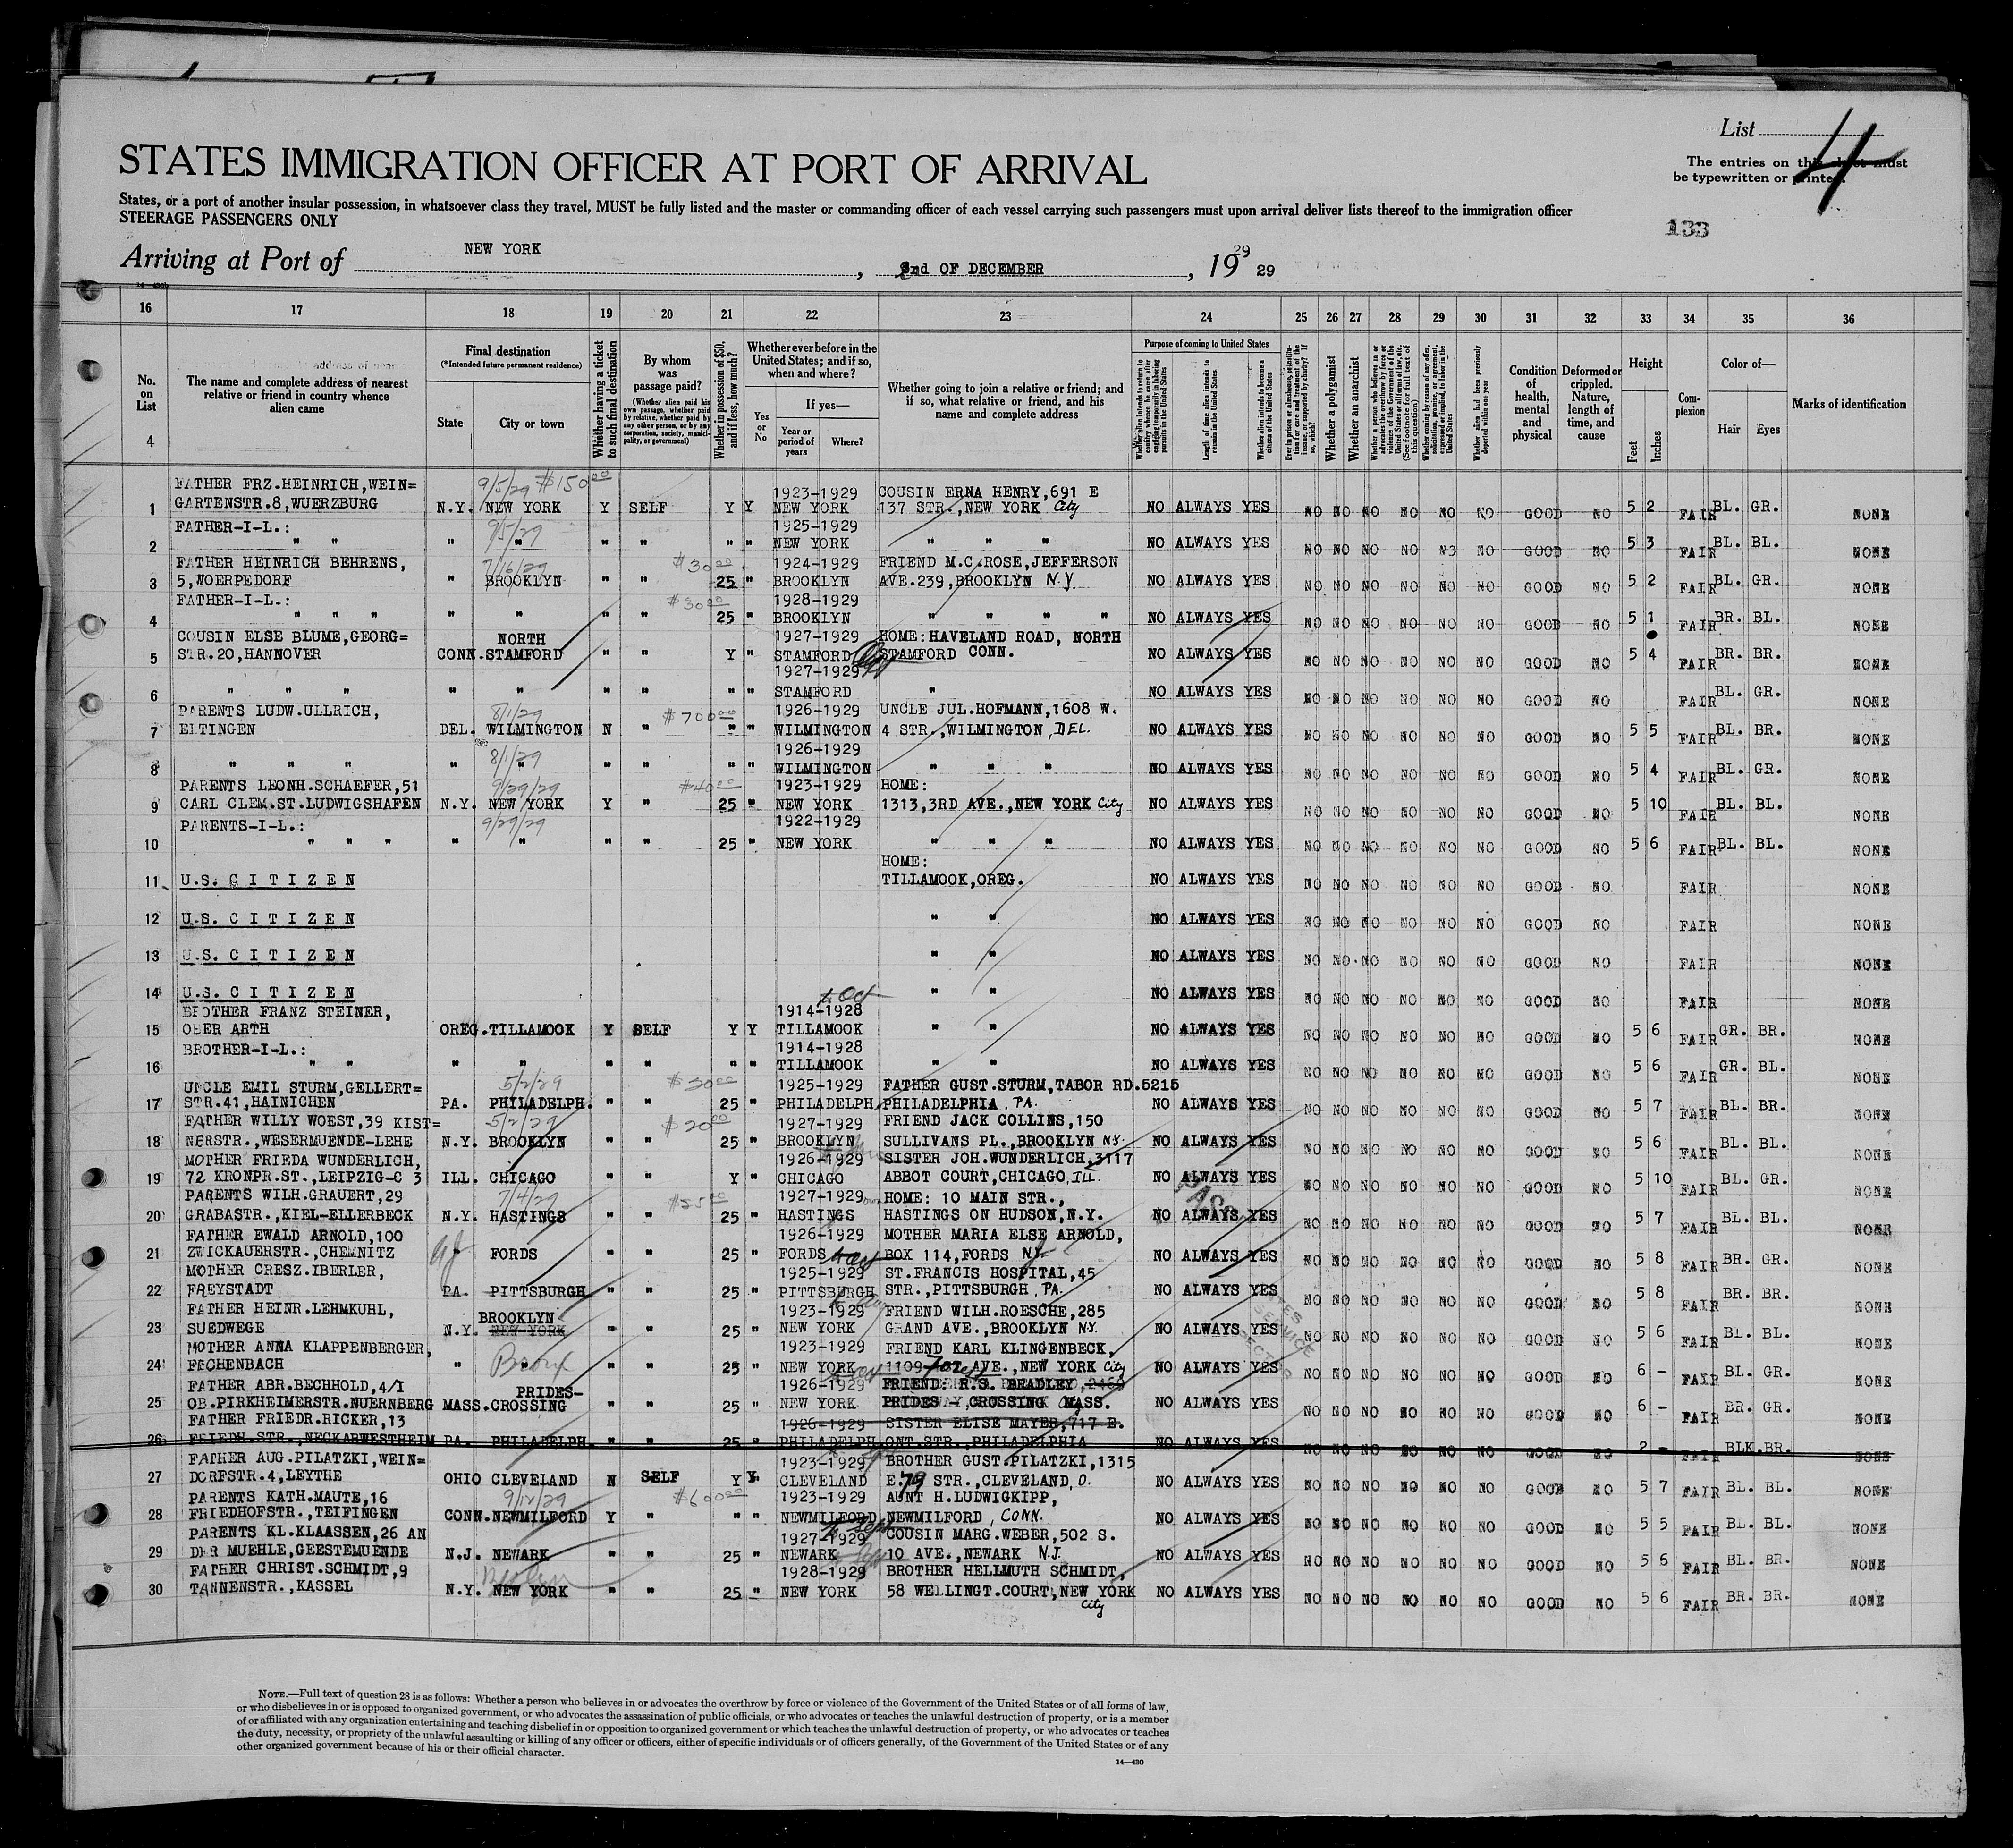 List 4
STATES IMMIGRATION OFFICER AT PORT OF ARRIVAL
The entries on this sheet must
be typewritten or printed.
States, or a port of another insular possession, in whatsoever class they travel, MUST be fully listed and the master or commanding officer of each vessel carrying such passengers must upon arrival deliver lists thereof to the immigration officer
STEERAGE PASSENGERS ONLY
133
Arriving at Port of NEW YORK, 2nd OF DECEMBER, 19 29 29
16 17 18 19 20 21 22 23 24 25 26 27 28 29 30 31 32 33 34 35 36
No. on List
4
The name and complete address of nearest relative or friend in country whence alien came
Final destination
(*Intended future permanent residence)
State
City or town
Whether having a ticket to such final destination
By whom was passage paid?
(Whether alien paid his own passage, whether paid by relative, whether paid by any other person, or by any corporation, society, municipality, or government)
Whether in possession of $50, and if less, how much?
Whether ever before in the United States; and if so, when and where?
Yes or No
If yes—
Year or period of years
Where?
Whether going to join a relative or friend; and if so, what relative or friend, and his name and complete address
Purpose of coming to United States
Whether alien intends to return to country whence he came after engaging temporarily in laboring pursuits in the United States
Length of time alien intends to remain in the United States
Whether alien intends to become a citizen of the United States
Ever in prison or almshouse, or institution for care and treatment of the insane, or supported by charity? If so, which?
Whether a polygamist
Whether an anarchist
Whether a person who believes in or advocates the overthrow by force or violence of the Government of the United States or all forms of law, etc. (See footnote for full text of this question)
Whether coming by reason of any offer, solicitation, promise, or agreement, expressed or implied, to labor in the United States
Whether alien had been previously deported within one year
Condition of health, mental and physical
Deformed or crippled. Nature, length of time, and cause
Height
Feet
Inches
Complexion
Color of—
Hair
Eyes
Marks of identification
FATHER FRZ.HEINRICH,WEIN= 9/5/29 $150 00 1923-1929 COUSIN ERNA HENRY,691 E
1 GARTENSTR.8,WUERZBURG N.Y. NEW YORK Y SELF Y Y NEW YORK 137 STR.,NEW YORK City NO ALWAYS YES NO NO NO NO NO NO GOOD NO 5 2 FAIR BL. GR. NONE
FATHER-I-L.: 9/5/29 1925-1929
2 " " " " " " " " NEW YORK " " " NO ALWAYS YES NO NO NO NO NO NO GOOD NO 5 3 FAIR BL. BL. NONE
FATHER HEINRICH BEHRENS, 7/16/29 $30 00 1924-1929 FRIEND M.C.ROSE,JEFFERSON
3 5,WOERPEDORF " BROOKLYN " " 25 " BROOKLYN AVE.239,BROOKLYN N.Y NO ALWAYS YES NO NO NO NO NO NO GOOD NO 5 2 FAIR BL. GR. NONE
FATHER-I-L.: $30 00 1928-1929
4 " " " " " " " 25 " BROOKLYN " " " " NO ALWAYS YES NO NO NO NO NO NO GOOD NO 5 1 FAIR BR. BL. NONE
COUSIN ELSE BLUME,GEORG= NORTH 1927-1929 HOME:HAVELAND ROAD, NORTH
5 STR.20,HANNOVER CONN.STAMFORD " " Y " STAMFORD STAMFORD CONN. NO ALWAYS YES NO NO NO NO NO NO GOOD NO 5 4 FAIR BR. BR. NONE
1927-1929
6 " " " " " " " " " STAMFORD " NO ALWAYS YES NO NO NO NO NO NO GOOD NO FAIR BL. GR. NONE
PARENTS LUDW.ULLRICH, 8/1/29 $700 00 1926-1929 UNCLE JUL.HOFMANN,1608 W.
7 ELTINGEN DEL. WILMINGTON N " " " WILMINGTON 4 STR.,WILMINGTON, DEL. NO ALWAYS YES NO NO NO NO NO NO GOOD NO 5 5 FAIR BL. BR. NONE
8/1/29 1926-1929
8 " " " " " " " " " WILMINGTON " " " NO ALWAYS YES NO NO NO NO NO NO GOOD NO 5 4 FAIR BL. GR. NONE
PARENTS LEONH.SCHAEFER,51 9/29/29 $40 00 1923-1929 HOME:
9 CARL CLEM.ST.LUDWIGSHAFEN N.Y. NEW YORK Y " 25 " NEW YORK 1313,3RD AVE.,NEW YORK City NO ALWAYS YES NO NO NO NO NO NO GOOD NO 5 10 FAIR BL. BL. NONE
PARENTS-I-L.: 9/29/29 1922-1929
10 " " " " " " " 25 " NEW YORK " " " NO ALWAYS YES NO NO NO NO NO NO GOOD NO 5 6 FAIR BL. BL. NONE
HOME:
11 U.S. C I T I Z E N TILLAMOOK,OREG. NO ALWAYS YES NO NO NO NO NO NO GOOD NO FAIR NONE
12 U.S. C I T I Z E N " " NO ALWAYS YES NO NO NO NO NO NO GOOD NO FAIR NONE
13 U.S. C I T I Z E N " " NO ALWAYS YES NO NO NO NO NO NO GOOD NO FAIR NONE
14 U.S. C I T I Z E N " " NO ALWAYS YES NO NO NO NO NO NO GOOD NO FAIR NONE
BROTHER FRANZ STEINER, 1914-1928
15 OBER ARTH OREG.TILLAMOOK Y SELF Y Y TILLAMOOK " " NO ALWAYS YES NO NO NO NO NO NO GOOD NO 5 6 FAIR GR. BR. NONE
BROTHER-I-L.: 1914-1928
16 " " " " " " " " TILLAMOOK " " NO ALWAYS YES NO NO NO NO NO NO GOOD NO 5 6 FAIR GR. BL. NONE
UNCLE EMIL STURM,GELLERT= 5/2/29 $30 00 1925-1929 FATHER GUST.STURM,TABOR RD.5215
17 STR.41,HAINICHEN PA. PHILADELPH. " " 25 " PHILADELPH. PHILADELPHIA, PA. NO ALWAYS YES NO NO NO NO NO NO GOOD NO 5 7 FAIR BL. BR. NONE
FATHER WILLY WOEST,39 KIST= 5/2/29 $20 00 1927-1929 FRIEND JACK COLLINS,150
18 NERSTR.,WESERMUENDE-LEHE N.Y. BROOKLYN " " 25 " BROOKLYN SULLIVANS PL.,BROOKLYN N.Y. NO ALWAYS YES NO NO NO NO NO NO GOOD NO 5 6 FAIR BL. BL. NONE
MOTHER FRIEDA WUNDERLICH, 1926-1929 SISTER JOH.WUNDERLICH,3117
19 72 KRONPR.ST.,LEIPZIG-C 3 ILL. CHICAGO " " Y " CHICAGO ABBOT COURT,CHICAGO, ILL. NO ALWAYS YES NO NO NO NO NO NO GOOD NO 5 10 FAIR BL. GR. NONE
PARENTS WILH.GRAUERT,29 7/4/29 $55 00 1927-1929 HOME: 10 MAIN STR.,
20 GRABASTR.,KIEL-ELLERBECK N.Y. HASTINGS " " 25 " HASTINGS HASTINGS ON HUDSON,N.Y. NO ALWAYS YES NO NO NO NO NO NO GOOD NO 5 7 FAIR BL. BL. NONE
FATHER EWALD ARNOLD,100 1926-1929 MOTHER MARIA ELSE ARNOLD,
21 ZWICKAUERSTR.,CHEMNITZ NJ FORDS " " 25 " FORDS BOX 114,FORDS N.J. NO ALWAYS YES NO NO NO NO NO NO GOOD NO 5 8 FAIR BR. GR. NONE
MOTHER CRESZ.IBERLER, 1925-1929 ST.FRANCIS HOSPITAL,45
22 FREYSTADT PA. PITTSBURGH " " 25 " PITTSBURGH STR.,PITTSBURGH, PA. NO ALWAYS YES NO NO NO NO NO NO GOOD NO 5 8 FAIR BR. BR. NONE
FATHER HEINR.LEHMKUHL, BROOKLYN 1923-1929 FRIEND WILH.ROESCHE,285
23 SUEDWEGE N.Y. NEW YORK " " 25 " NEW YORK GRAND AVE.,BROOKLYN N.Y. NO ALWAYS YES NO NO NO NO NO NO GOOD NO 5 6 FAIR BL. BL. NONE
MOTHER ANNA KLAPPENBERGER, 1923-1929 FRIEND KARL KLINGENBECK,
24 FECHENBACH " " Bronx " " 25 " NEW YORK 1109 Forest AVE.,NEW YORK City NO ALWAYS YES NO NO NO NO NO NO GOOD NO 6 - FAIR BL. GR. NONE
FATHER ABR.BECHHOLD,4/I PRIDES- 1926-1929 FRIEND: R.S. BRADLEY
25 OB.PIRKHEIMERSTR.NUERNBERG MASS.CROSSING " " 25 " NEW YORK PRIDES - CROSSING MASS. NO ALWAYS YES NO NO NO NO NO NO GOOD NO 6 - FAIR BR. GR. NONE
FATHER FRIEDR.RICKER,13 1926-1929 SISTER ELISE MAYER,717 E.
26 FRIEDH.STR.,NECKARWESTHEIM PA. PHILADELPH. " " 25 " PHILADELPH. ONT.STR.,PHILADELPHIA NO ALWAYS YES NO NO NO NO NO NO GOOD NO 2 - FAIR BLK.BR. NONE
FATHER AUG.PILATZKI,WEIN= 1923-1929 BROTHER GUST.PILATZKI,1315
27 DORFSTR.4,LEYTHE OHIO CLEVELAND N SELF Y Y CLEVELAND E. 79 STR.,CLEVELAND, O. NO ALWAYS YES NO NO NO NO NO NO GOOD NO 5 7 FAIR BL. BL. NONE
PARENTS KATH.MAUTE,16 9/12/29 $600 00 1923-1929 AUNT H.LUDWIGKIPP,
28 FRIEDHOFSTR.,TEIFINGEN CONN.NEWMILFORD Y " " " NEWMILFORD NEWMILFORD, CONN. NO ALWAYS YES NO NO NO NO NO NO GOOD NO 5 5 FAIR BL. BL. NONE
PARENTS KL.KLAASSEN,26 AN 1927-1929 COUSIN MARG.WEBER,502 S.
29 DER MUEHLE,GEESTEMUENDE N.J. NEWARK " " 25 " NEWARK 10 AVE.,NEWARK N.J. NO ALWAYS YES NO NO NO NO NO NO GOOD NO 5 6 FAIR BL. BR. NONE
FATHER CHRIST.SCHMIDT,9 1928-1929 BROTHER HELLMUTH SCHMIDT,
30 TANNENSTR.,KASSEL N.Y. NEW YORK " " 25 " NEW YORK 58 WELLINGT.COURT,NEW YORK City NO ALWAYS YES NO NO NO NO NO NO GOOD NO 5 6 FAIR BR. BR. NONE
NOTE.—Full text of question 28 is as follows: Whether a person who believes in or advocates the overthrow by force or violence of the Government of the United States or of all forms of law,
or who disbelieves in or is opposed to organized government, or who advocates the assassination of public officials, or who advocates or teaches the unlawful destruction of property, or is a member
of or affiliated with any organization entertaining and teaching disbelief in or opposition to organized government or which teaches the unlawful destruction of property, or who advocates or teaches
the duty, necessity, or propriety of the unlawful assaulting or killing of any officer or officers, either of specific individuals or of officers generally, of the Government of the United States or of any
other organized government because of his or their official character.
14—430